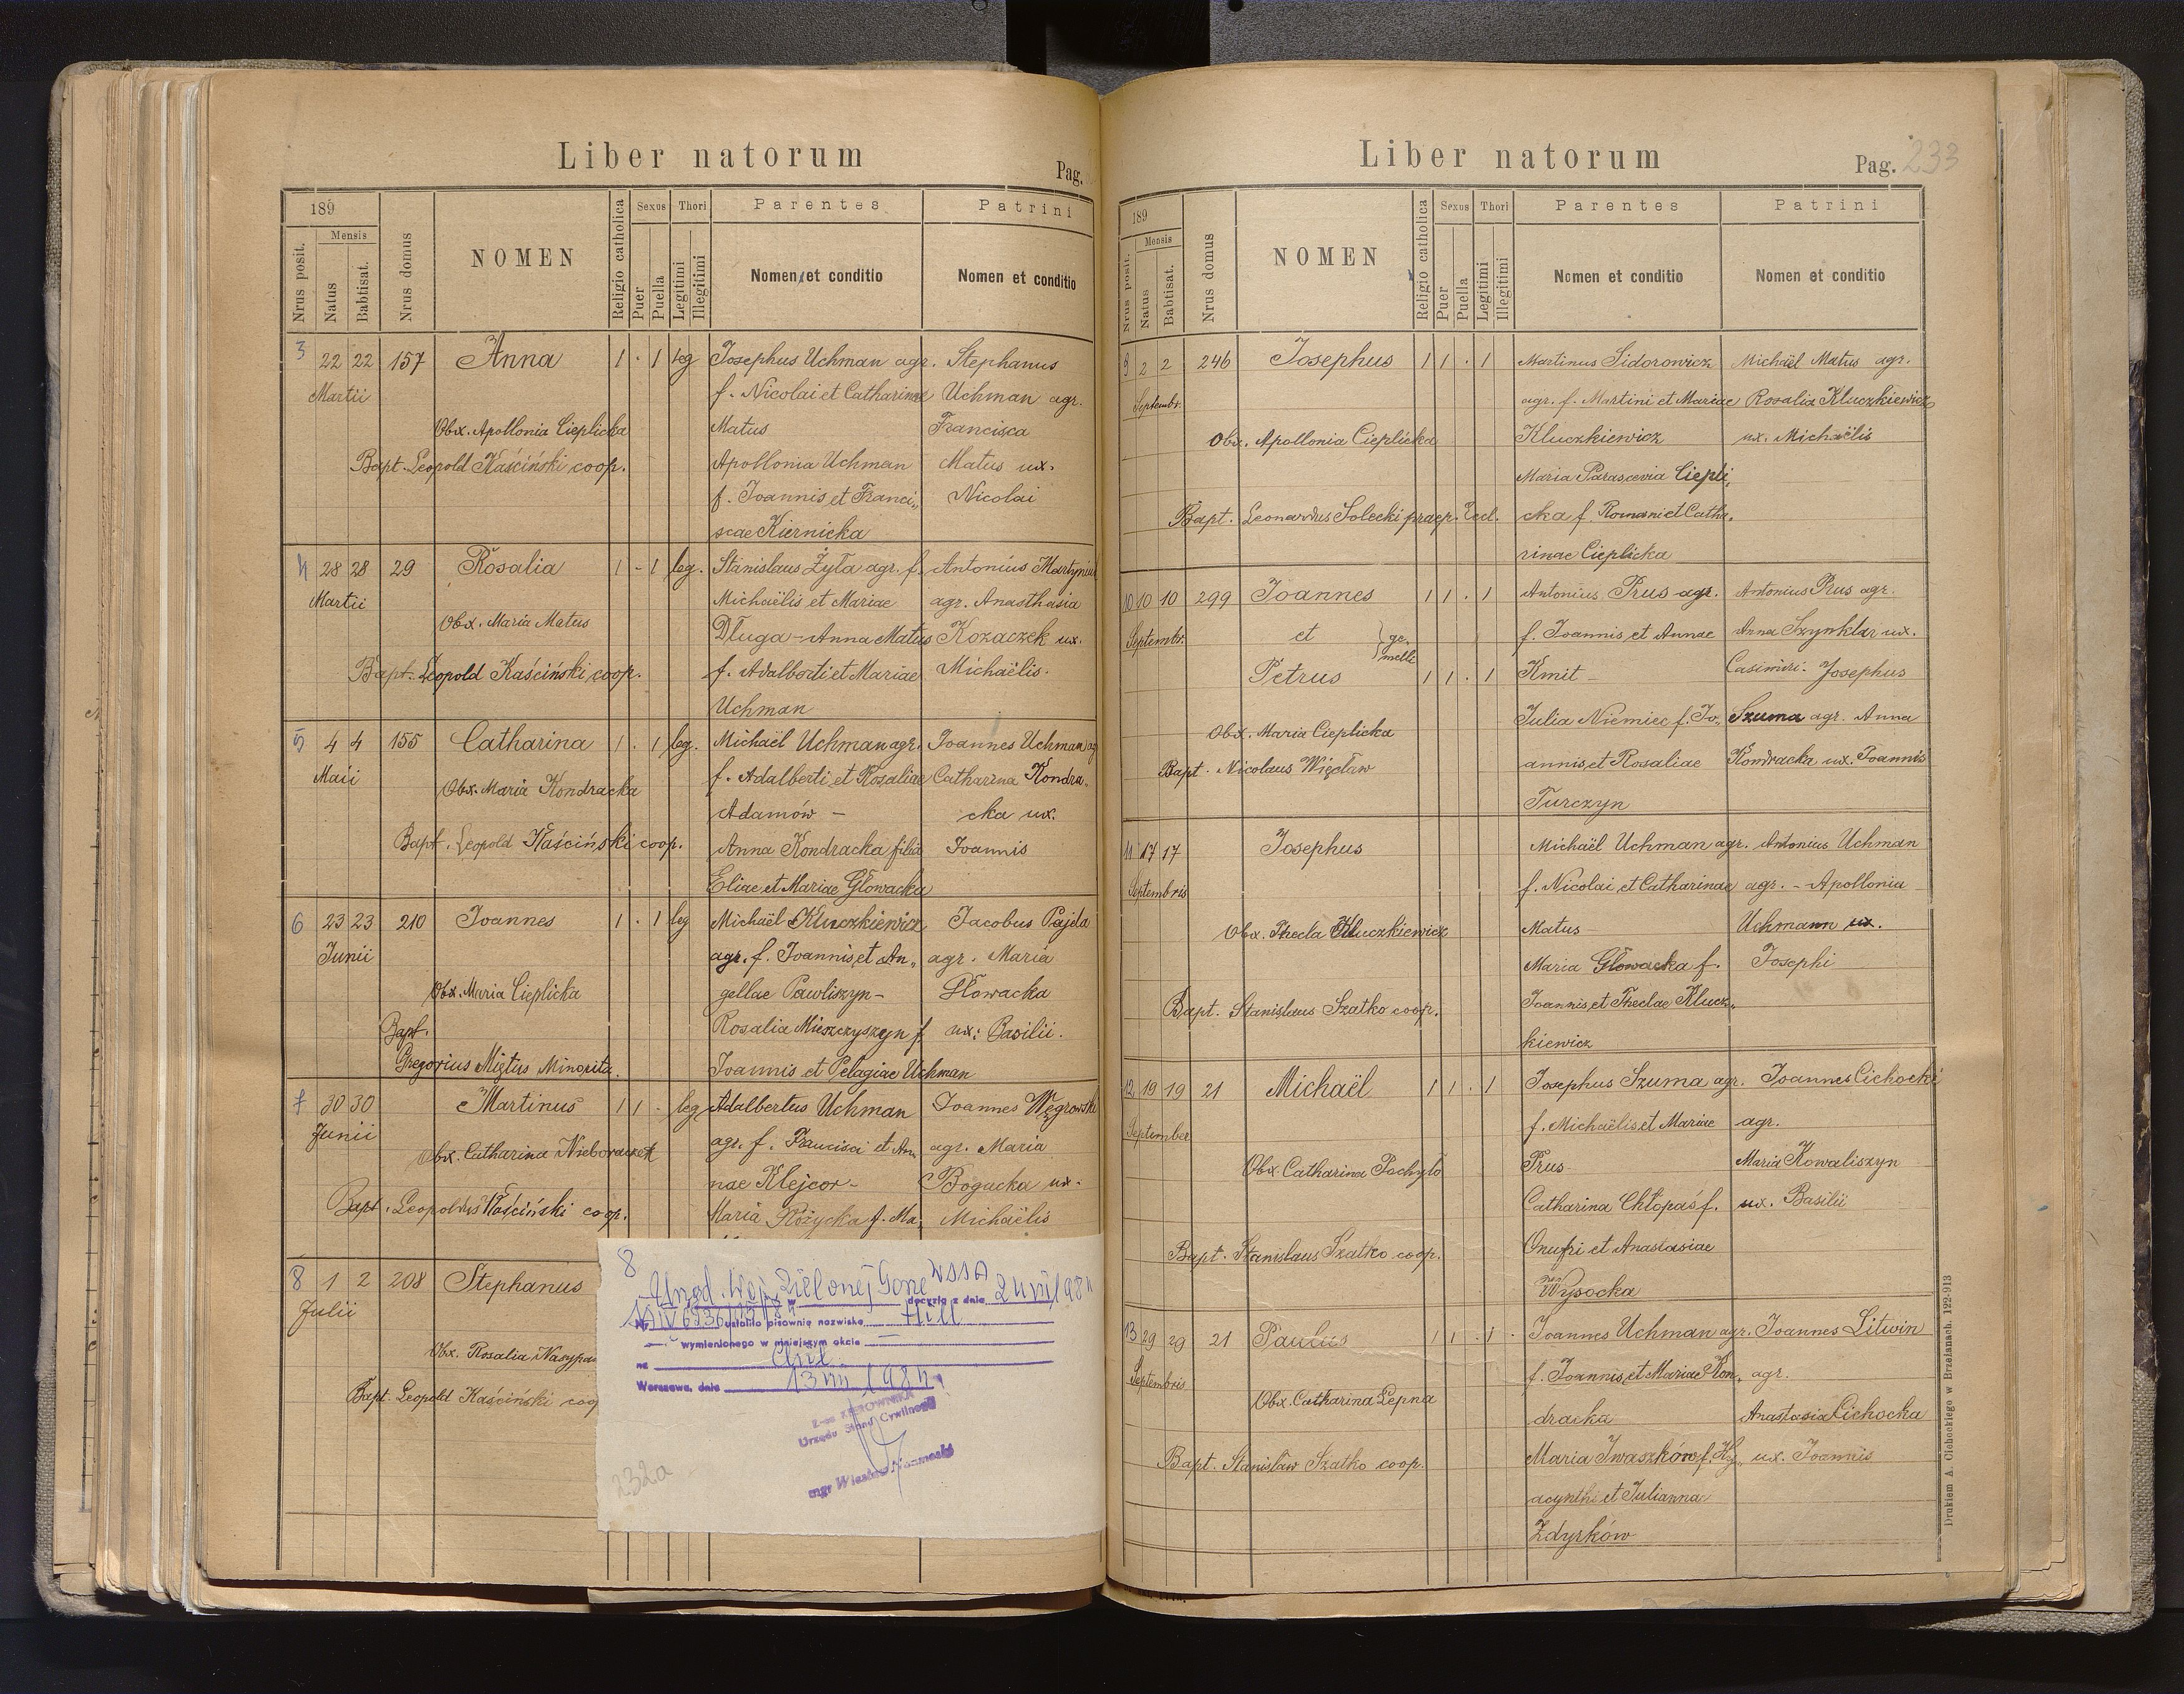 Liber natorum
Pag.
189
Mensis
Nrus posit.
Natus
Babtisat.
Nrus domus
NOMEN
Religio catholica
Sexus
Puer
Puella
Thori
Legitimi
Illegitimi
Parentes
Nomen et conditio
Patrini
Nomen et conditio
3 22 22 157 Anna 1 · 1 leg Josephus Uchman agr. Stephanus
Martii f. Nicolai et Catharinae Uchman agr.
Obx. Apollonia Cieplicka Matus Francisca
Bapt. Leopold Kaściński coop. Apollonia Uchman Matus ux.
f. Joannis et Franci„ Nicolai
scae Kiernicka
4 28 28 29 Rosalia 1 - 1 leg. Stanislaus Żyła agr. f. Antonius
Martii Michaëlis et Mariae agr. Anasthasia
Obx. Maria Matus Długa - Anna Matus Kozaczek ux.
Bapt. Leopold Kaściński coop. f. Adalberti et Mariae Michaëlis.
Uchman
5 4 4 155 Catharina 1 · 1 leg. Michaël Uchman agr. Joannes Uchman ag
Maii f. Adalberti et Rosaliae Catharina Kondra„
Obx. Maria Kondracka Adamów - cka ux.
Bapt. Leopold Kaściński coop. Anna Kondracka filia Joannis
Eliae et Mariae Głowacka
6 23 23 210 Joannes 1 · 1 leg Michaël Kluczkiewicz Jacobus Pajda
Junii agr. f. Joannis et An„ agr. Maria
Obx. Maria Cieplicka gellae Pawliszyn - Głowacka
Bapt. Rosalia f. ux: Basilii.
Gregorius Miętus Minorita. Joannis et Pelagiae Uchman
7 30 30 Martinus 1 1 · leg Adalbertus Uchman Joannes Węgrowski
Junii agr. f. Francisci et An„ agr. Maria
Obx. Catharina Nieboraczek nae Klejcor - Bogucka ux.
Bapt. Leopoldus Kaściński coop. Maria Różycka f. Ma„ Michaëlis
8 1 2 208 Stephanus
Julii
Obx. Rosalia
Bapt. Leopold Kaściński coop
8
Urząd. Woj. Zielonej Górze WSSA
w decyzją z dnia 2 VIII 1984
Nr ustaliło pisownię nazwiska Hill
wymienionego w niniejszym akcie
na
Warszawa, dnia 13 VIII 1984
Z-ca KIEROWNIKA
Urzędu Stanu Cywilnego
232a
Liber natorum
Pag. 233
189
Mensis
Nrus posit.
Natus
Babtisat.
Nrus domus
NOMEN
Religio catholica
Sexus
Puer
Puella
Thori
Legitimi
Illegitimi
Parentes
Nomen et conditio
Patrini
Nomen et conditio
9 2 2 246 Josephus 1 1 · 1 Martinus Sidorowicz Michaël Matus agr.
Septembr. agr. f. Martini et Mariae Rosalia Kluczkiewicz
Obx. Apollonia Cieplicka Kluczkiewicz ux. Michaëlis
Maria Parascevia Ciepli„
Bapt. Leonardus Solecki praep. Eccl. cka f. Romani et Catha„
rinae Cieplicka
10 10 10 299 Joannes 1 1 · 1 Antonius Prus agr. Antonius Prus agr.
Septembr. et ge„ f. Joannis et Annae Anna Szynklar ux.
melli
Petrus 1 1 · 1 Kmit - Casimiri. Josephus
Julia Niemiec f. Jo„ Szuma agr. Anna
Obx. Maria Cieplicka
Bapt. Nicolaus Więcław annis et Rosaliae Kondracka ux. Joannis
Turczyn
11 17 17 Josephus Michaël Uchman agr. Antonius Uchman
Septembris f. Nicolai et Catharinae agr. - Apollonia
Obx. Thecla Kluczkiewicz Matus Uchmann ux.
Maria Głowacka f. Josephi
Bapt. Stanislaus Szatko coop. Joannis et Theclae Klucz„
kiewicz
12 19 19 21 Michaël 1 1 · 1 Josephus Szuma agr. Joannes Cichocki
September f. Michaëlis et Mariae agr.
Obx. Catharina Pochyło Prus Maria Kowaliszyn
Catharina Chłopaś f. ux. Basilii
Bapt. Stanislaus Szatko coop. Onufri et Anastasiae
Wysocka
13 29 29 21 Paulus 1 1 · 1 · Joannes Uchman agr. Joannes Litwin
Septembris f. Joannis et Mariae Kon„ agr.
Obx. Catharina Lepna dracka Anastasia Cichocka
Bapt. Stanisław Szatko coop. Maria Iwaszków f. Hy„ ux. Joannis
acynthi et Juliannae
Zdyrków
Drukiem A. Cichockiego w Brzeżanach. 122-913